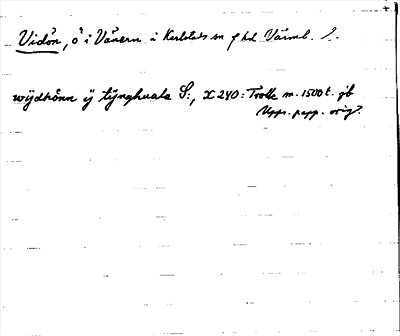 Vidön, ö i Vänern i Karlstads sn o hd Värml. l.
wÿdhönn ÿ tÿnghuala S:, X 240: Trolle m. 1500 t. jb
Upps. papp. orig.